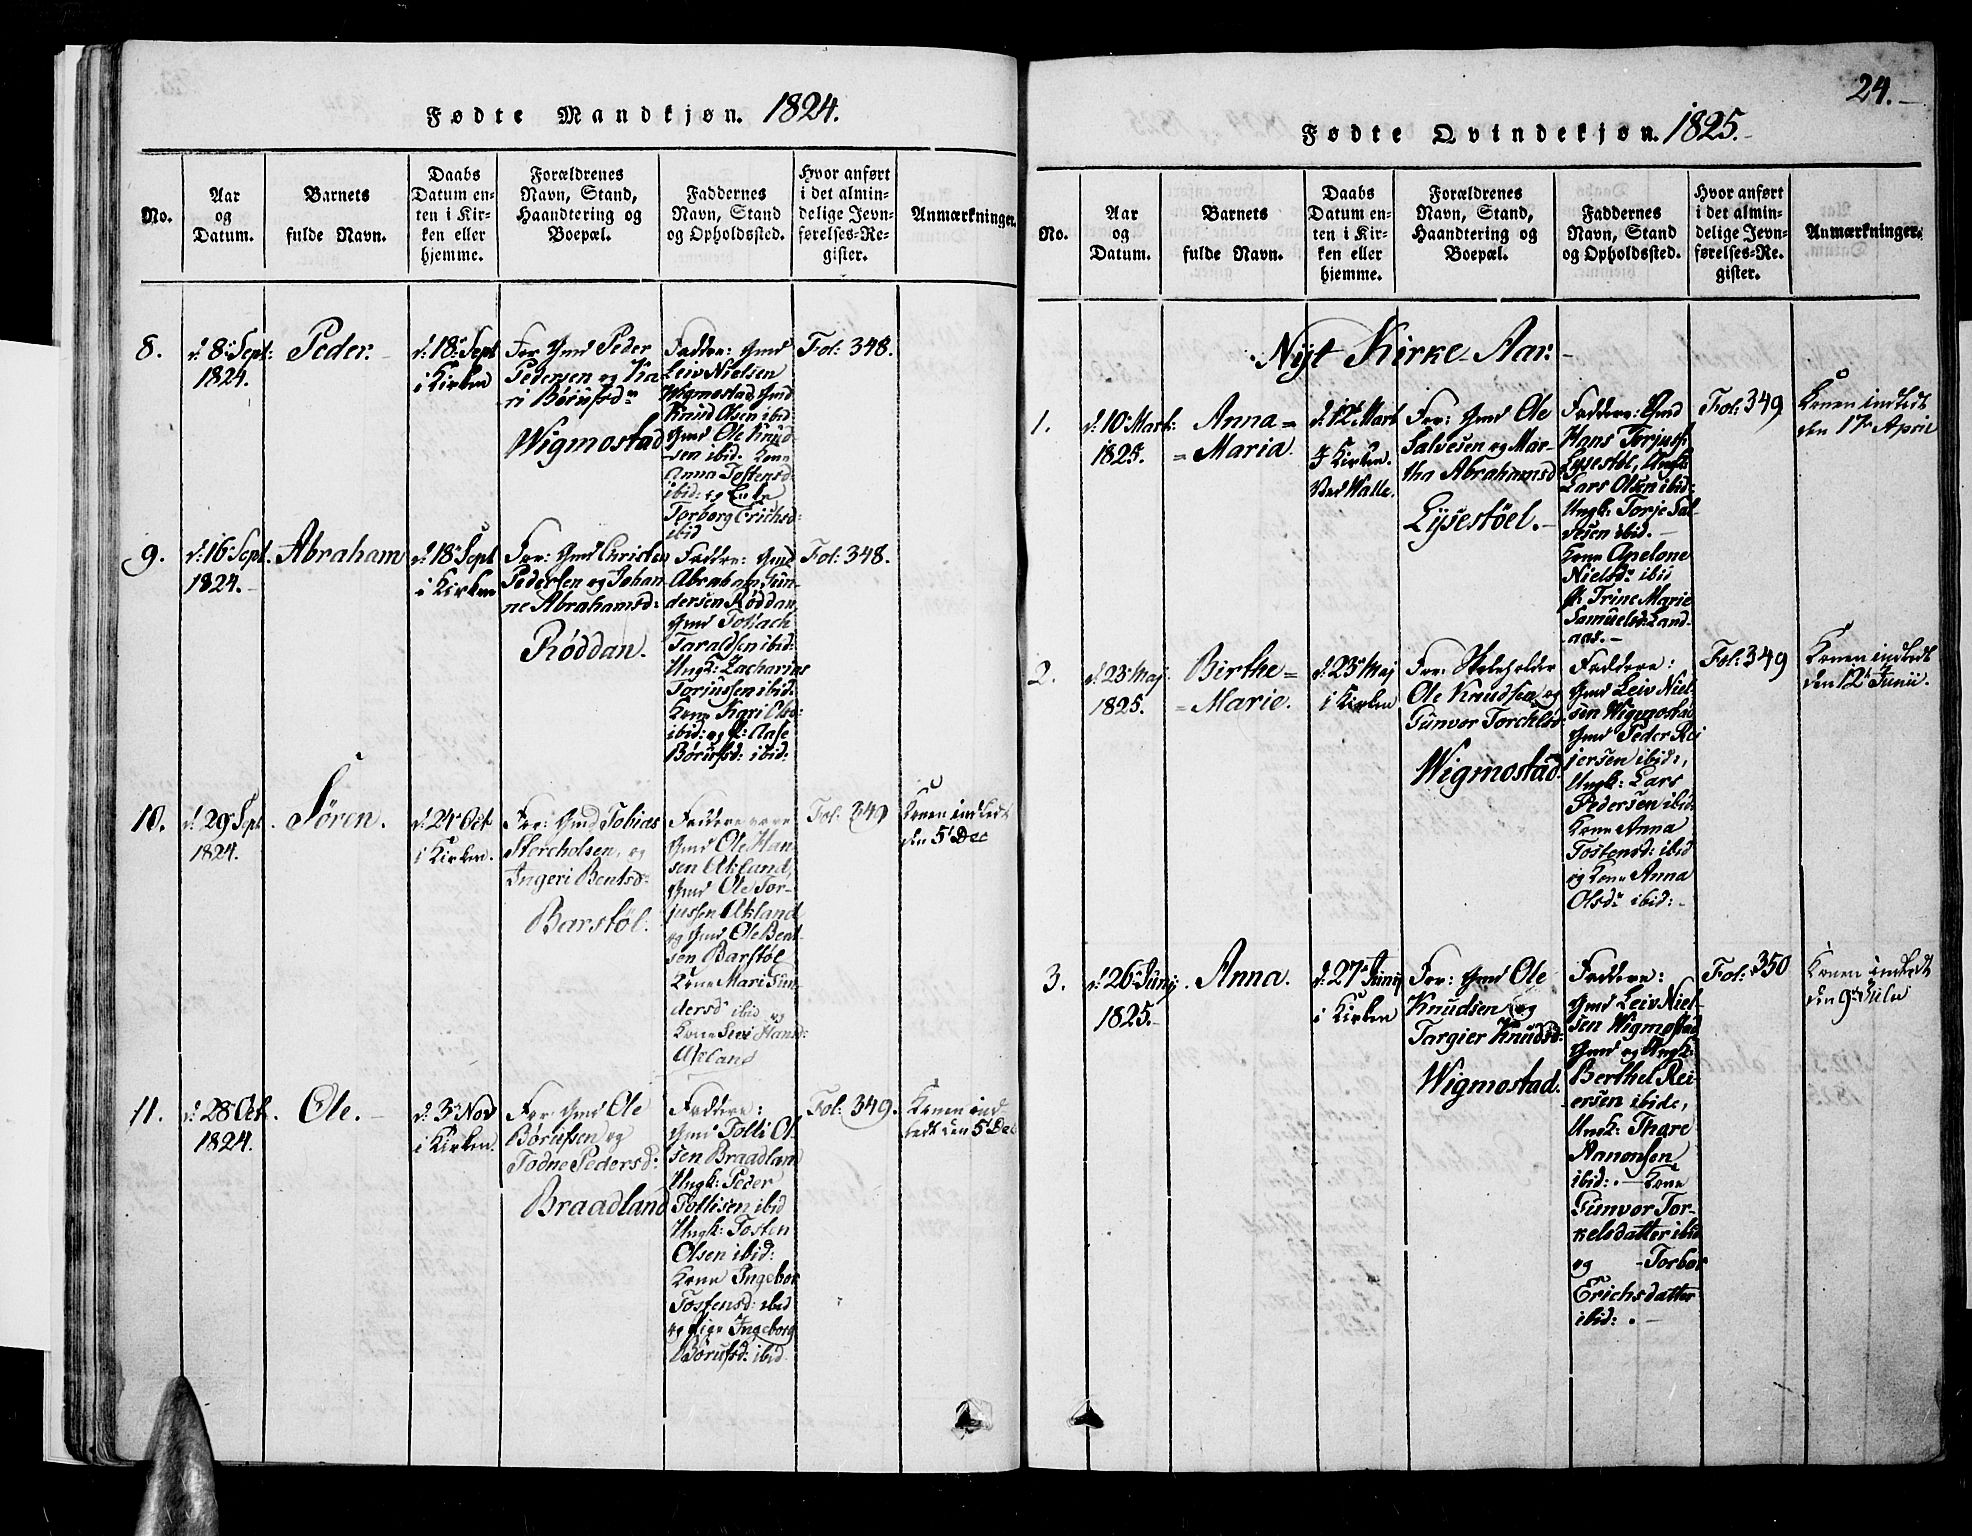 Fødte Mandkjøn. 1824.
No.
Aar
og
Datum.
Barnets
fulde Navn.
Daabs
Datum en-
ten i Kir-
ken eller
hjemme.
Forældrenes
Navn, Stand,
Haandtering og
Boepæl.
Faddernes
Navn, Stand
og Opholdssted.
Hvor anført
i det almin-
delige Jevn-
førelses-Re-
gister.
Anmærkninger.
8.
d: 8 Sept:
1824.
Peder.
d: 18 Sept
i Kirken
For: Gmd Peder
Pedersen og Ka
ri Børufsdr
Wigmostad
Faddere: Gmd
Leiv Nielsen
Wigmostad, Gmd
Knud Olsen ibid
Gmd Ole Knud-
sen ibid. Kone
Anna Tostensd
ibid: og
Torborg Erichsd:
ibid
Fol: 348.
9.
d: 16 Sept.
1824.
Abraham
d: 18 Sept
i Kirken
For: Gmd Christen
Pedersen og Johan
ne Abrahamsd:
Røddan.
Faddere: Gmd
Abraham Gun-
dersen Røddan,
Gmd Tollach
Taraldsen ibid:
Ungk: Zacharias
Torjussen ibid:
Kone Kari Ols:
ibid: og P: Aase
Børufsd: ibid:
Fol: 348.
10.
d: 29 Spt
1824.
Søren.
d: 24 Oct
i Kirken.
For: Gmd Tobias
Storcholsen, og
Ingeri Bentsd:
Barstøl.
Faddere vare
Gmd Ole Han-
sen Akland,
Gmd Ole Tor-
jussen Akland
og Gmd Ole Bent
sen Barstøl
Kone Mari Gun-
dersd ibid og
Kone Siri Hansd:
Akland
Fol: 349
Konen indledt
den 5 Dec
11.
d: 28 Oct.
1824.
Ole.
d: 3 Nov
i Kirken.
For: Gmd Ole
Børufsen og
Todne Pedersd:
Braadland
Faddere:
Gmd Tolli Ol-
sen Braadland
Ungk: Peder
Tollisen ibid
Ungk: Tosten
Olsen ibid:
Kone Ingebor
Tostensd: ibid
og Pige Ingeborg
Børufsd: ibid
Fol: 349.
Konen ind
ledt den 5 Dec
24.
Fødte Qvindekjøn. 1825.
No.
Aar
og
Datum.
Barnets
fulde Navn.
Daabs
Datum en-
ten i Kir-
ken eller
hjemme.
Forældrenes
Navn, Stand,
Haandtering og
Boepæl.
Faddernes
Navn, Stand
og Opholdssted.
Hvor anført
i det almin-
delige Jevn-
førelses-Re-
gister.
Anmærkninger.
Nyt Kirke-Aar.
1.
d: 10 Mart:
1825.
Anna=
=Maria.
d: 12 Mart
I Kirken.
Ved Walle.
For: Gmd Ole
Salvesen og Mar-
tha Abrahamsd:
Lysestøel.
Faddere: Gmd
Hans Torjusfs
Lysestøl, Ungk:
Lars Olsen ibid:
Ungk: Torje Sal-
vesen ibid.
Kone Anelone
Nielsd: ibii
P: Trine Marie
Samuelsd: Land-
aas.
Fol: 349
Konen indledt
den 17 April
2.
d: 23 Maj.
1825.
Birthe=
=Marie.
d: 23 Maj
i Kirken
For: Skoleholder
Ole Knudsen og
Gunvor Torchelsd:
Wigmostad.
Faddere:
Gmd Leiv Niel-
sen Wigmostad
Gmd Peder Rei
jersen ibid:,
Ungk: Lars
Pedersen ibid:
Kone Anna
Tostensd: ibid
og Kone Anna
Olsd: ibid:
Fol: 349
Konen indledt
den 12 Junii.
3.
d: 26 Junij
1825.
Anna.
d: 27 Junij
i Kirken
For: Gmd Ole
Knudsen og
Targier Knudsd:
Wigmostad.
Faddere:
Gmd Leiv Niel-
sen Wigmostad
Gmd og Ungk:
Berthel Rei-
ersen ibide,
Ungk: Thore
Aanonsen
ibid: Kone
Gunvor Tor-
kelsdatter ibid
og Torbor
Erichsdatter
ibid:
Fol: 350
Konen indledt
den 9 Julii